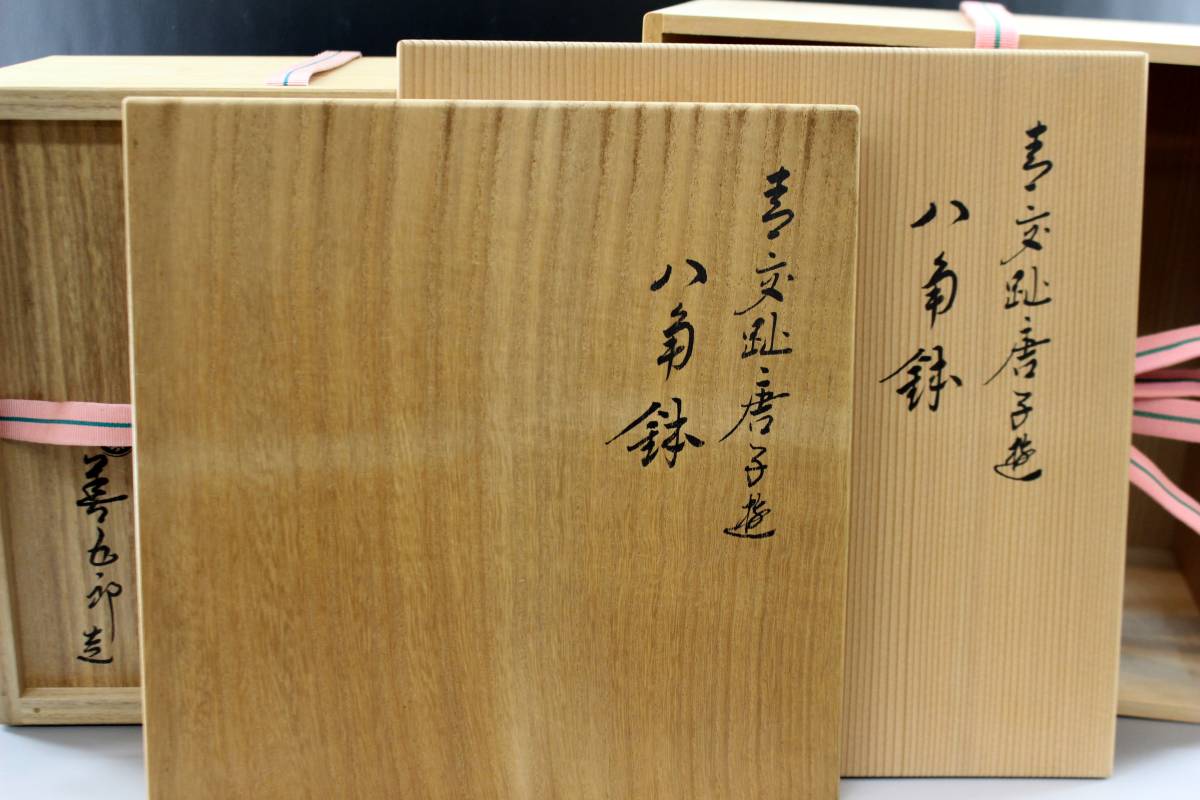 青交趾唐子遊
八角鉢
青交趾唐子遊
八角鉢
善五郎造